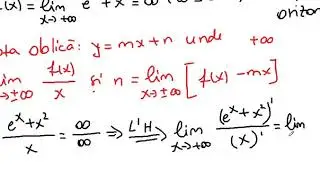 f(x) = lim x→+∞ e^x + x^2 = ∞
orizon
ota oblică: y = mx + n unde +∞
lim x→±∞ f(x)/x și n = lim x→±∞ [f(x) - mx]
(e^x + x^2)/x = ∞/∞ ⇒ L'H ⇒ lim x→+∞ (e^x + x^2)'/(x)' = lim